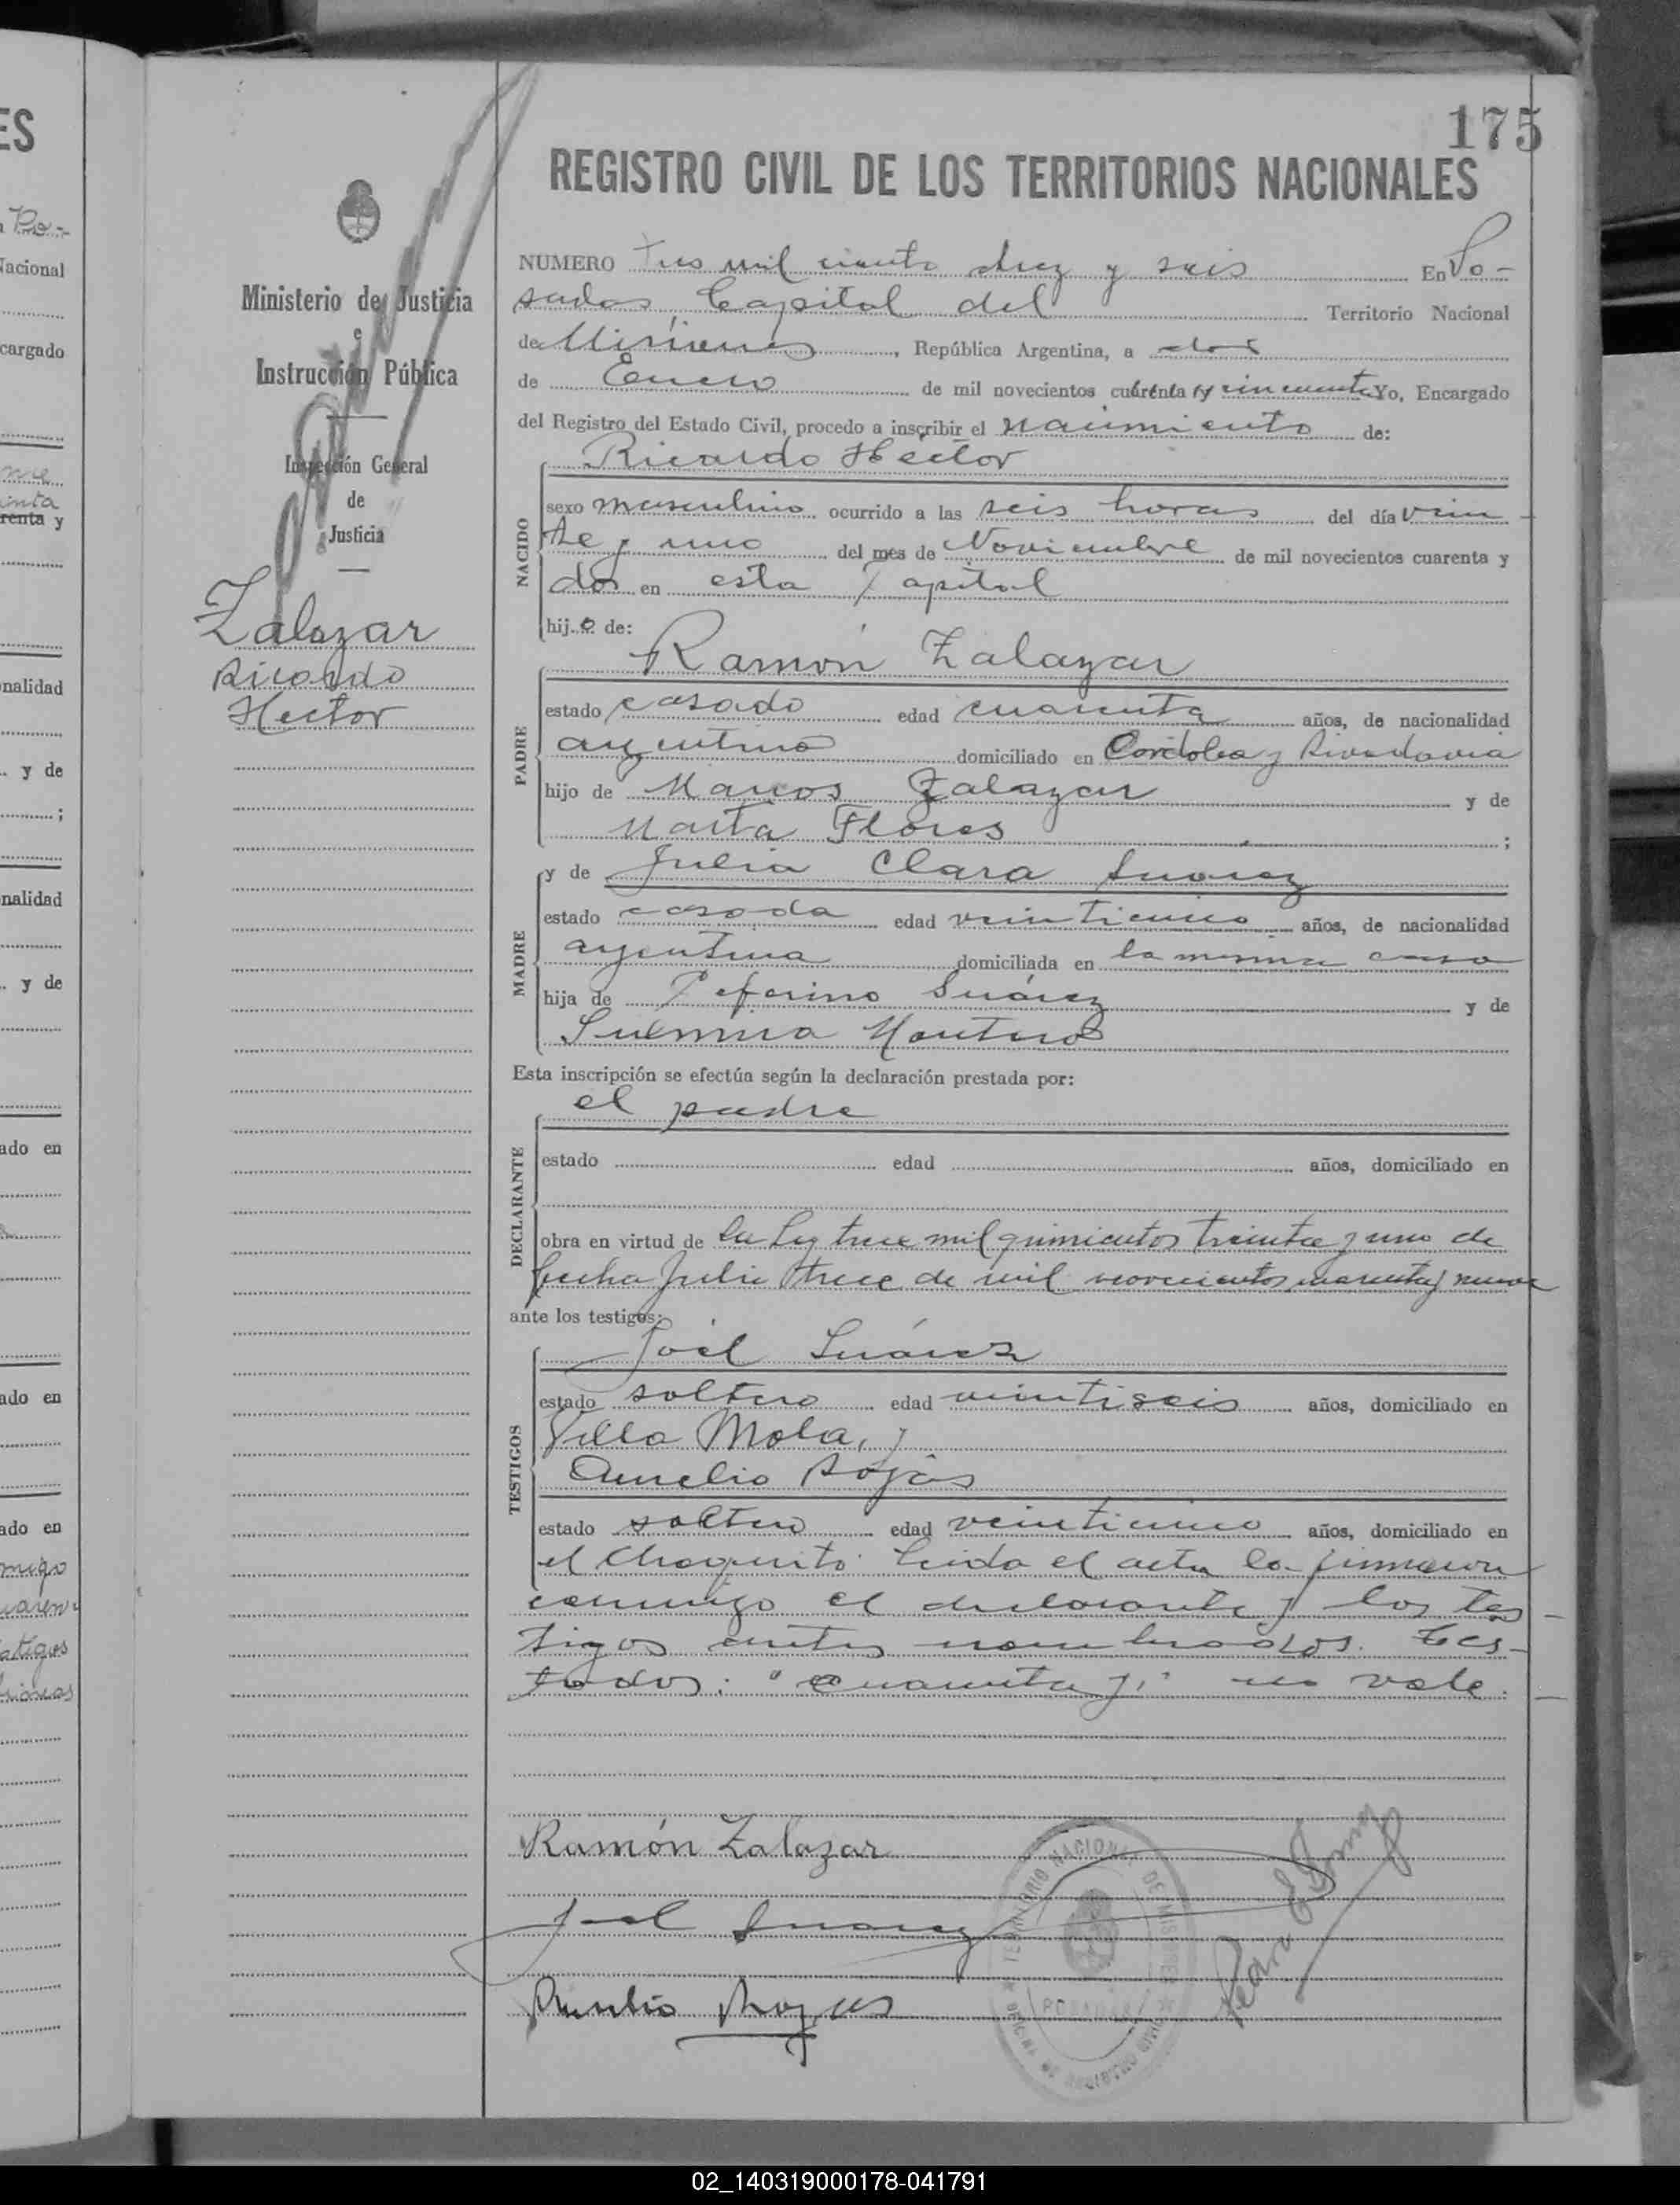 175
REGISTRO CIVIL DE LOS TERRITORIOS NACIONALES
Ministerio de Justicia
e
Instrucción Pública
Inspección General
de
Justicia
Zalazar
Ricardo
Hector
NUMERO Tres mil ciento diez y seis En Po-
sadas Capital del Territorio Nacional
de Misiones, República Argentina, a dos
de Enero de mil novecientos cuarenta y cincuenta Yo, Encargado
del Registro del Estado Civil, procedo a inscribir el nacimiento de:
Ricardo Hector
NACIDO
sexo masculino ocurrido a las seis horas del día vein-
te y uno del mes de Noviembre de mil novecientos cuarenta y
dos en esta Capital
hijo de:
Ramón Zalazar
PADRE
estado casado edad cuarenta años, de nacionalidad
argentino domiciliado en Cordoba y Rivadavia
hijo de Marcos Zalazar y de
Marta Flores ;
y de Julia Clara Suárez
MADRE
estado casada edad veinticinco años, de nacionalidad
argentina domiciliada en la misma casa
hija de Ceferino Suárez y de
Montero
Esta inscripción se efectúa según la declaración prestada por:
el padre
DECLARANTE
estado edad años, domiciliado en
obra en virtud de la ley trece mil quinientos treinta y uno de
fecha Julio trece de mil novecientos cuarenta y nueve
ante los testigos:
Joel Suárez
TESTIGOS
estado soltero edad veintiseis años, domiciliado en
Villa Mola, y
Aurelio Rojas
estado soltero edad veinticinco años, domiciliado en
el Chaquito. Leida el acta la firmaron
conmigo el declarante y los tes-
tigos antes nombrados. Tes-
tados: "cuarenta y" no vale.
Ramón Zalazar
Joel Suarez
Aurelio Rojas
TERRITORIO NACIONAL DE MISIONES
POSADAS
OFICINA DE REGISTRO CIVIL
02_140319000178-041791